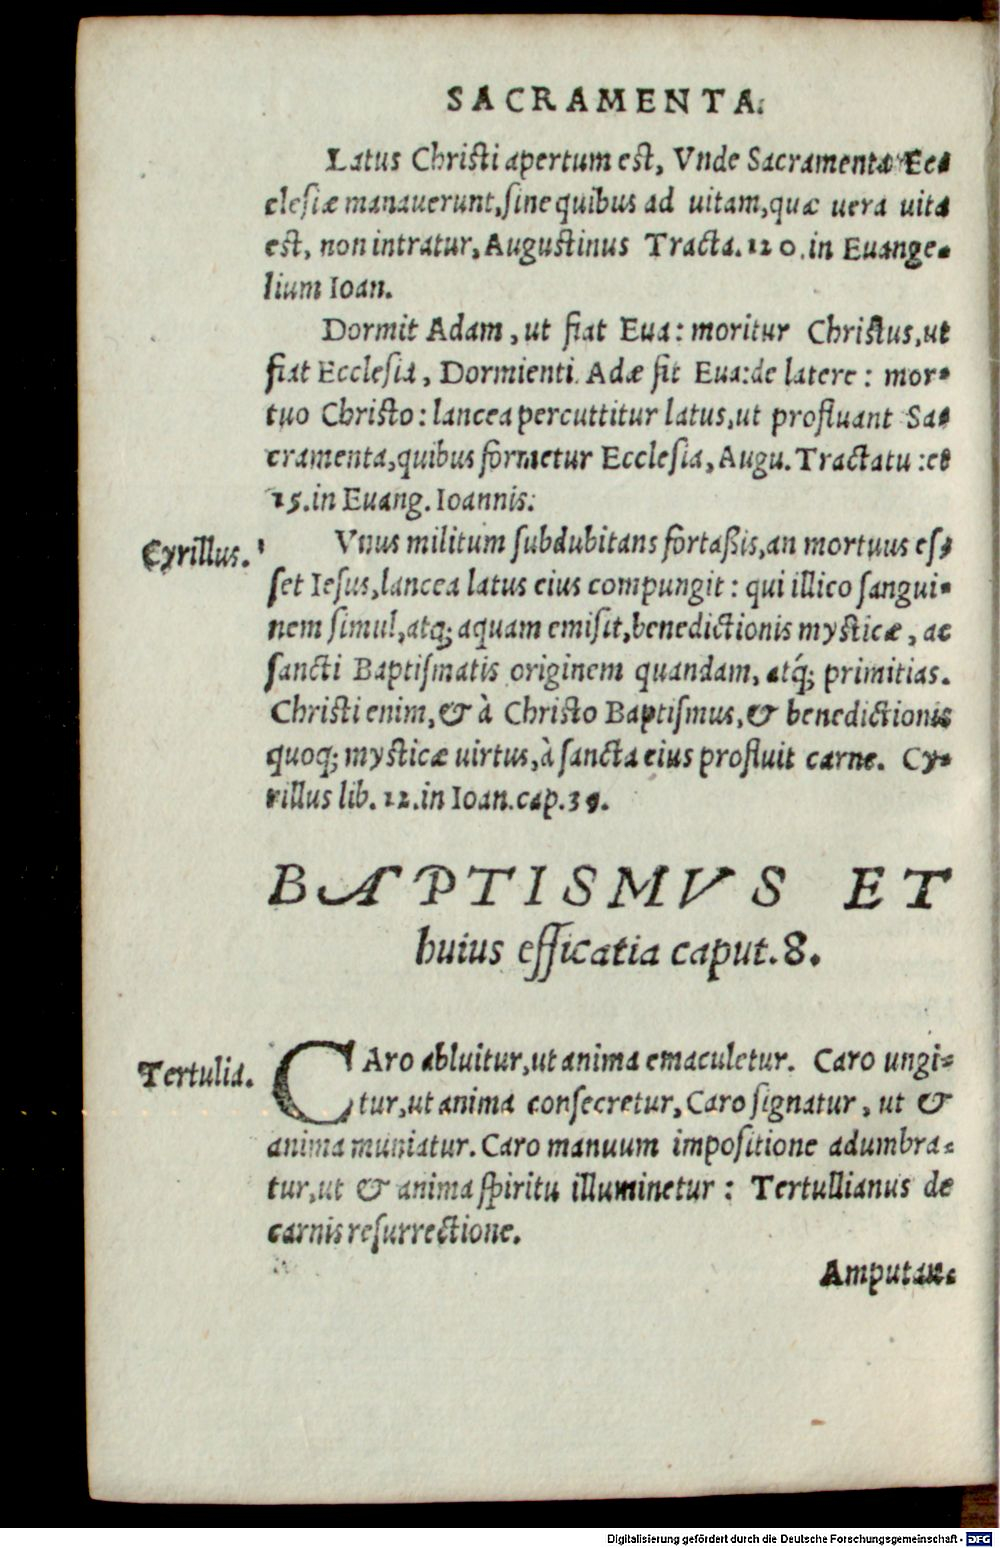 SACRAMENTA.
Latus Christi apertum est, Vnde Sacramenta Ec-
clesiæ manauerunt, sine quibus ad uitam, quæ uera uita
est, non intratur, Augustinus Tracta. 120. in Euange-
lium Ioan.
Dormit Adam, ut fiat Eua: moritur Christus, ut
fiat Ecclesia, Dormienti Adæ fit Eua: de latere: mor-
tuo Christo: lancea percuttitur latus, ut profluant Sa-
cramenta, quibus formetur Ecclesia, Augu. Tractatu: et
15. in Euang. Ioannis.
Cyrillus.
Vnus militum subdubitans fortaßis, an mortuus es-
set Iesus, lancea latus eius compungit: qui illico sangui-
nem simul, atq; aquam emisit, benedictionis mysticæ, ac
sancti Baptismatis originem quandam, atq́; primitias.
Christi enim, & à Christo Baptismus, & benedictionis
quoq; mysticæ uirtus, à sancta eius profluit carne. Cy-
rillus lib. 12. in Ioan. cap. 39.
BAPTISMVS ET
huius efficatia caput. 8.
Tertulia.
CAro abluitur, ut anima emaculetur. Caro ungi-
tur, ut anima consecretur, Caro signatur, ut &
anima muniatur. Caro manuum impositione adumbra-
tur, ut & anima spiritu illuminetur: Tertullianus de
carnis resurrectione.
Amputan-
Digitalisierung gefördert durch die Deutsche Forschungsgemeinschaft - DFG